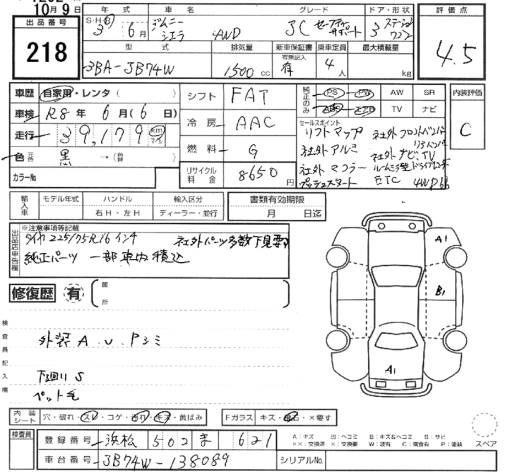 10月9日
出品番号
218
S・H 3年 6月
車名
ジムニー シエラ 4WD
グレード
JC セーフティサポート
ドア・形状
3 ステーションワゴン
評価点
4.5
型式
3BA-JB74W
排気量
1500 cc
新車保証書
有 無記入
乗車定員
4人
最大積載量
kg
車歴 自家用・レンタ
車検 R8年 6月(6日)
走行 39,179 km
色 元色 黒 → (色替)
カラーNo
シフト FAT
冷房 AAC
燃料 G
リサイクル料金 8650
AW SR
TV ナビ
セールスポイント
リフトアップ 社外フロントバンパー
社外アルミ リヤバンパー
社外マフラー 社外ナビ、TV
プッシュスタート ETC
内装評価
C
輸入車 モデル年式/ハンドル/輸入区分
右H・左H ディーラー・並行
書類有効期限
月 日迄
※注意事項等記載
タイヤ225/75R16インチ 社外パーツ多数下見要
純正パーツ 一部車内積込
修復歴 有 箇所
検査員記入欄
外装 A、U、Pシミ
下廻りS
ペット毛
A1
B1
A1
内装シート 穴・破れ・スレ・コゲ・汚れ・キズ・黄ばみ
Fガラス キズ・
検査員
登録番号 浜松 502 ま 621
車台番号 JB74W-138089
シリアルNo.
A:キズ U:凹ミ B:キズ&凹ミ S:サビ
スペア